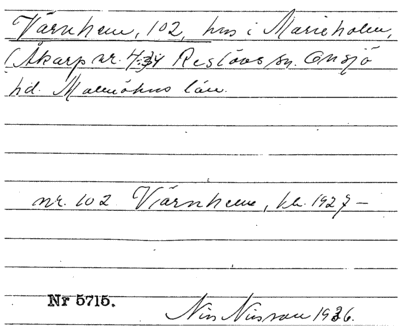 Värnhem, 102, hus i Marieholm,
(Åkarp nr. 4:34 Reslövs sn. Onsjö
hd. Malmöhus län.
nr. 102 Värnhem, bl. 1927 —
Nr 5715.
Nils Nilsson 1936.